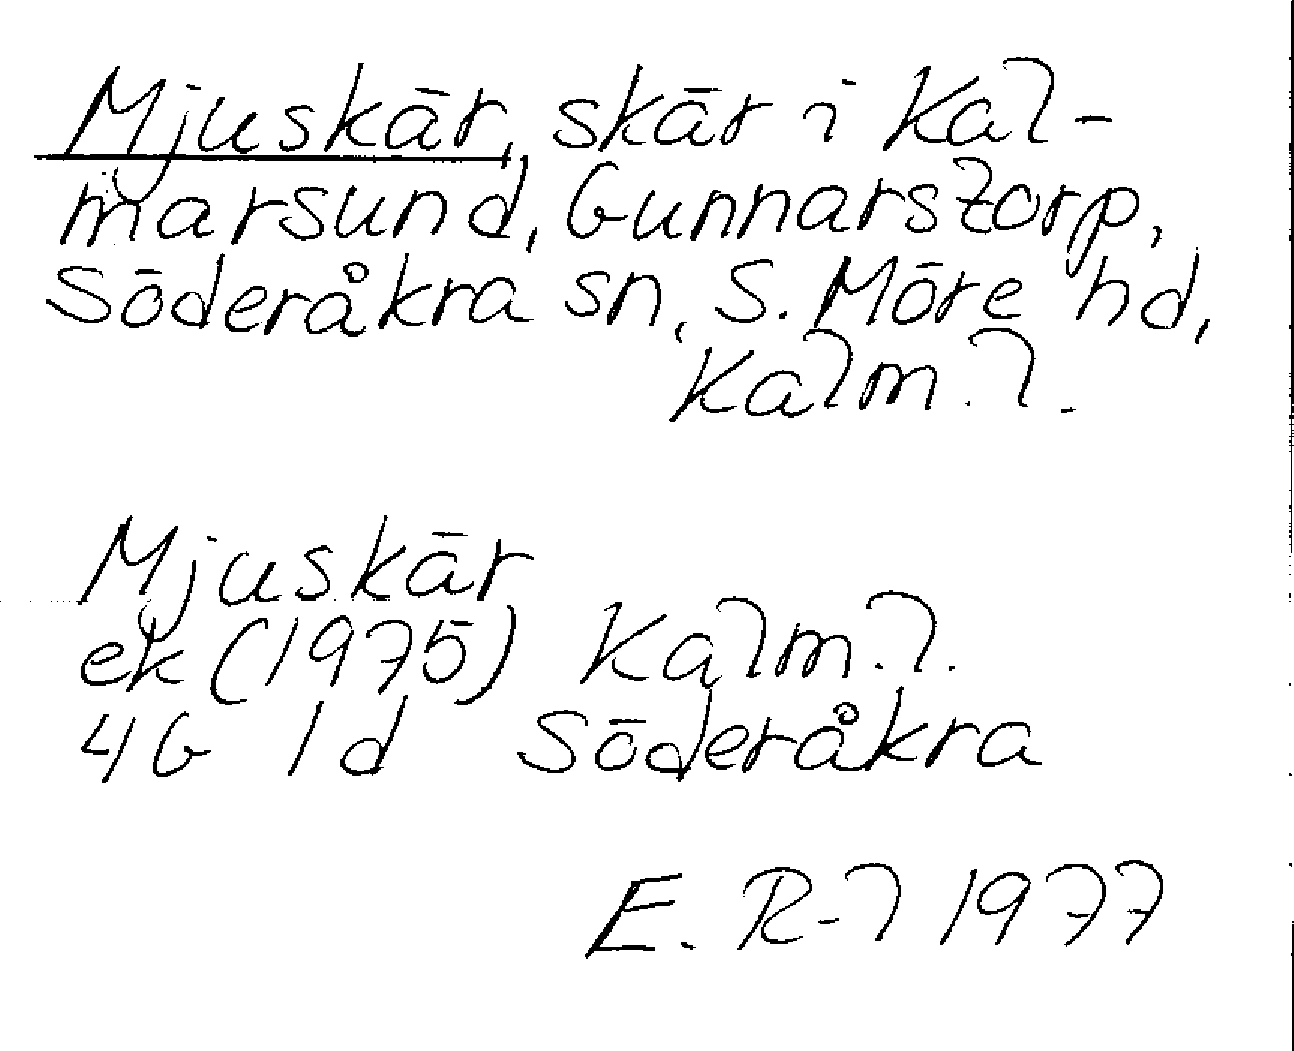 Mjuskär, skär i Kal-
marsund, Gunnarstorp,
Söderåkra sn, S. Möre hd,
Kalm. l.
Mjuskär
ek (1975) Kalm. l.
4G 1d Söderåkra
E. R-l 1977